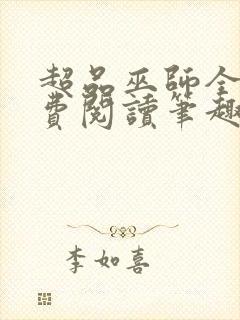 超品巫師全
費閱讀筆趣
李如喜